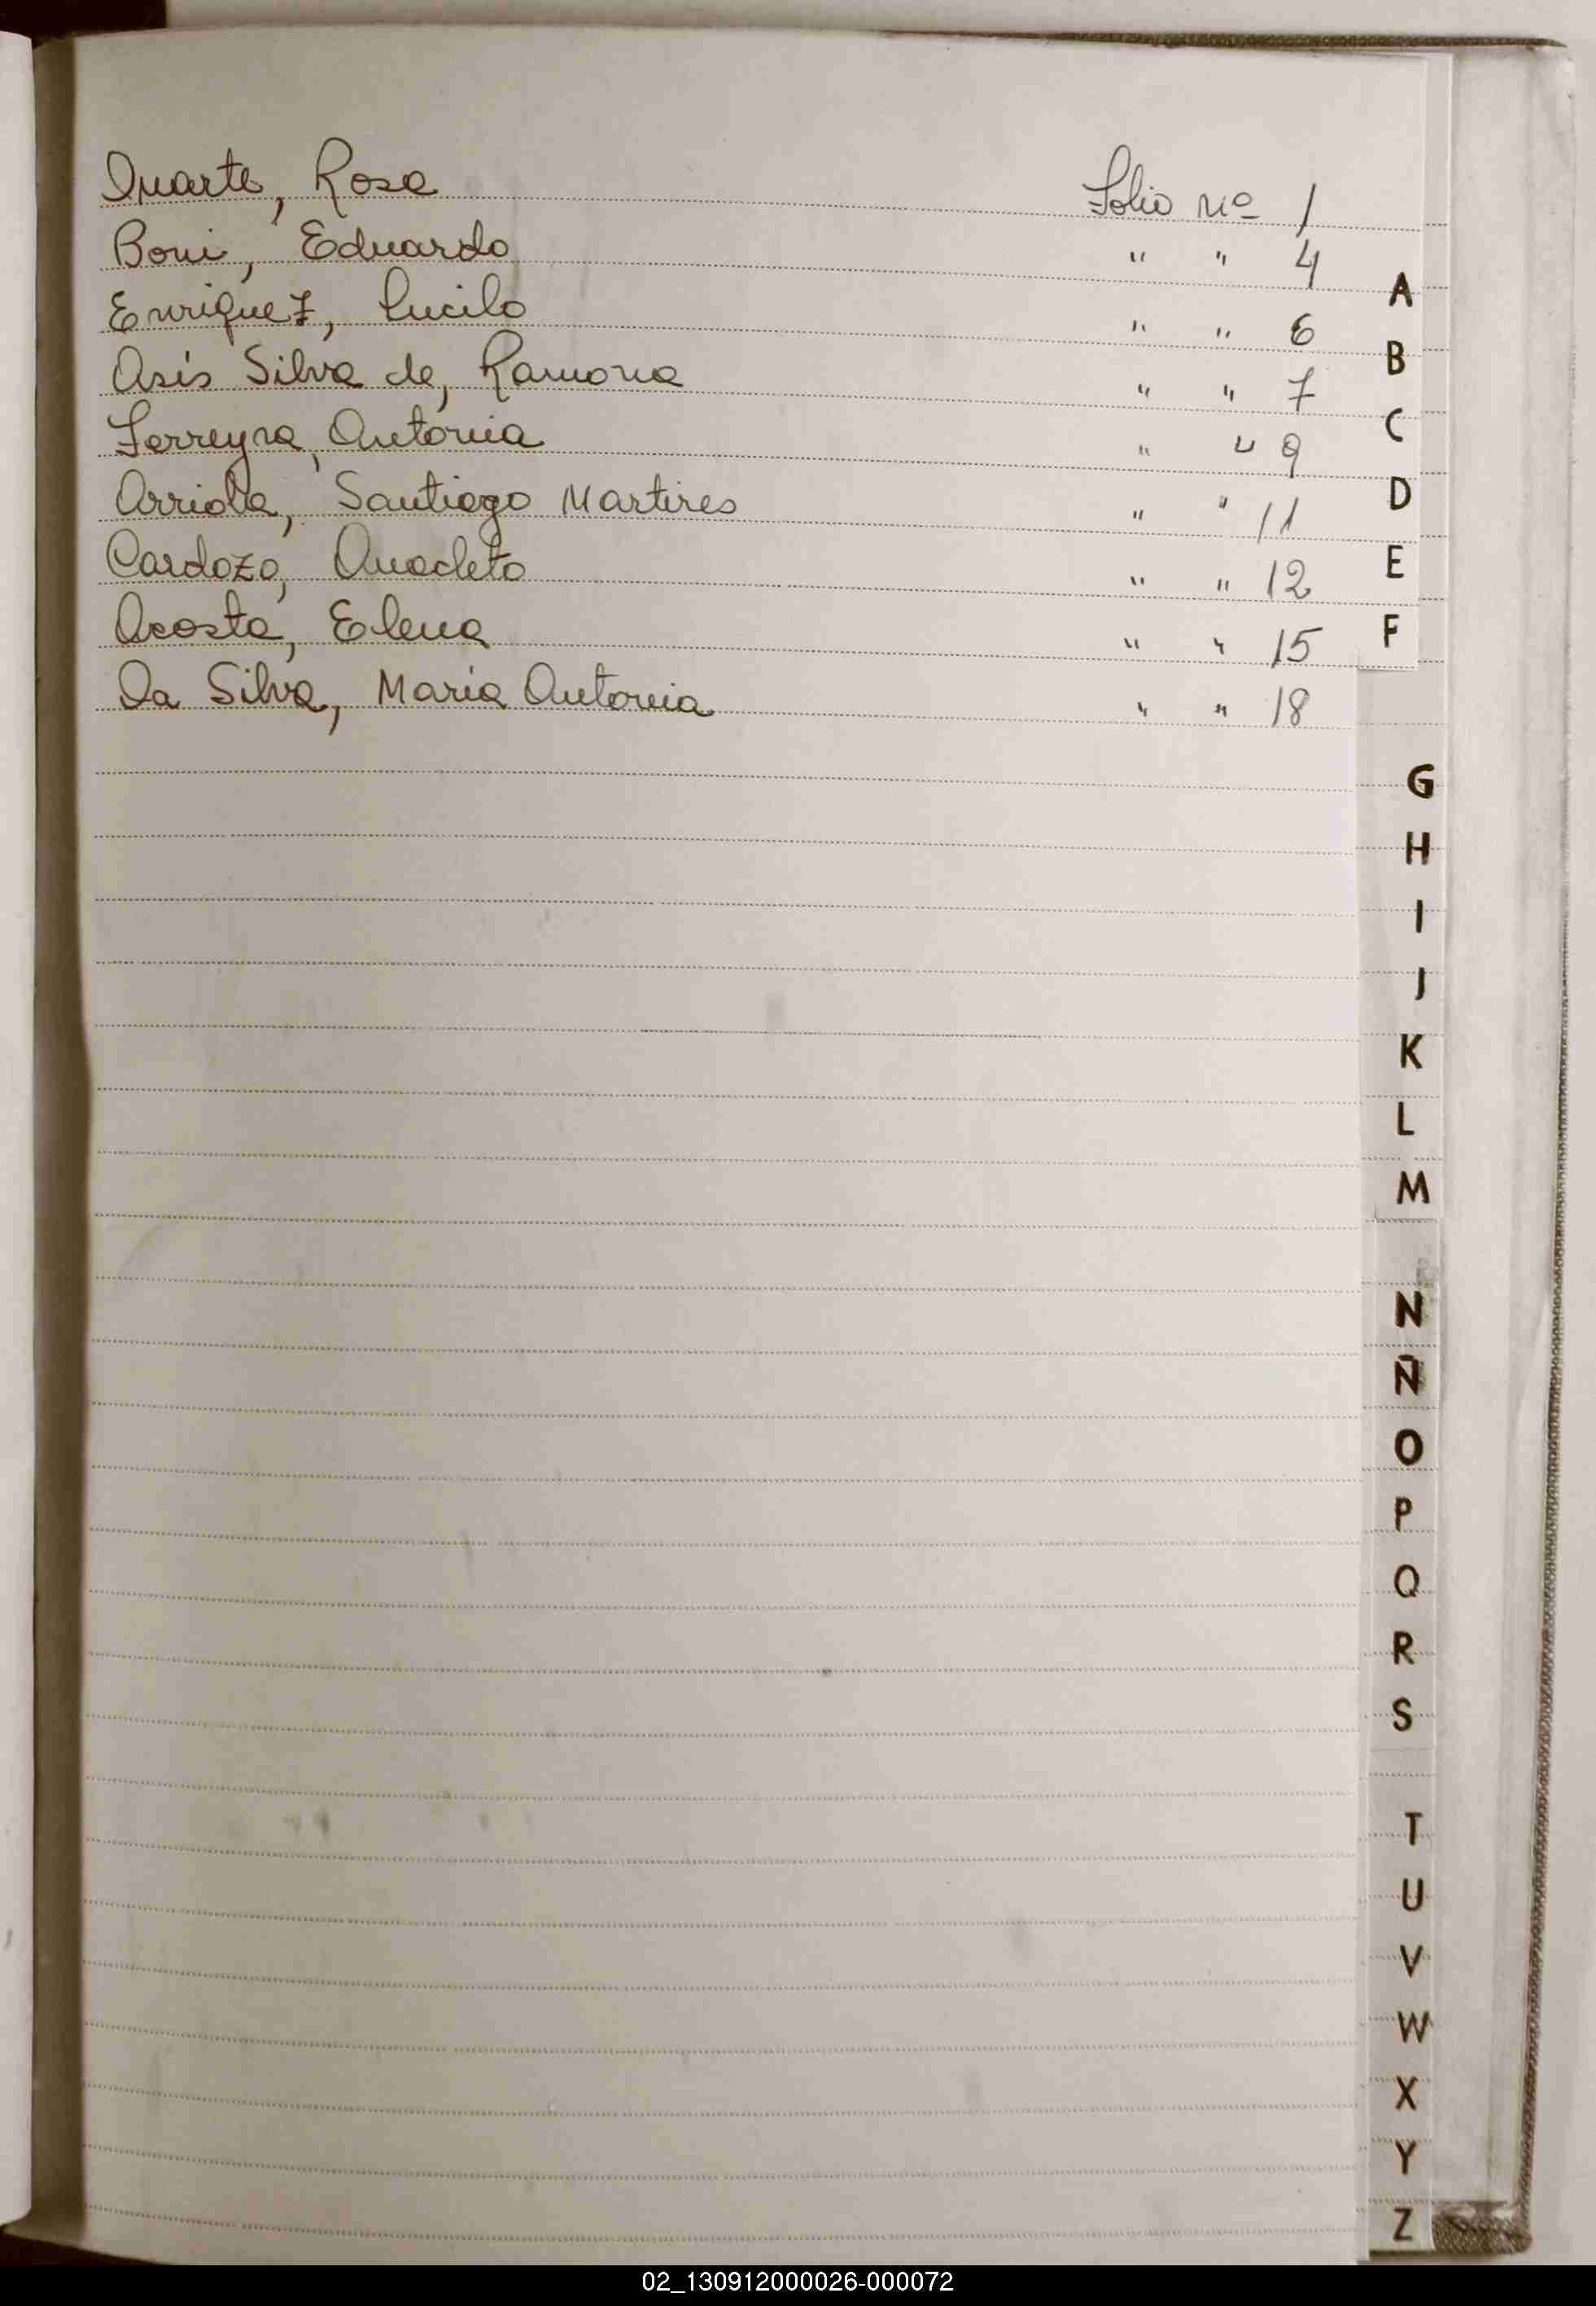 Duarte, Rosa Folio nº 1
Boni, Eduardo " " 4
Enriquez, Lucilo " " 6
Asis Silva de, Ramona " " 7
Ferreyra, Antonia " " 9
Arriola, Santiago Martires " " 11
Cardozo, Anacleto " " 12
Acosta, Elena " " 15
Da Silva, Maria Antonia " " 18
A
B
C
D
E
F
G
H
I
J
K
L
M
N
Ñ
O
P
Q
R
S
T
U
V
W
X
Y
Z
02_130912000026-000072